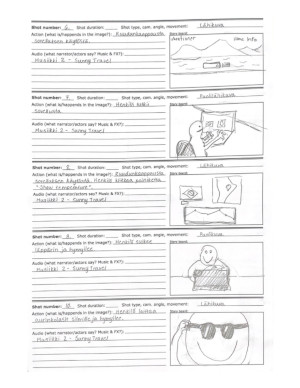 Shot number: 6 Shot duration: Shot type, cam. angle, movement: Lähikuva
Action (what is/happens in the image?): Ruudunkaappausta
sovelluksen käytöstä.
Audio (what narrator/actors say? Music & FX?):
Musiikki 2 - Sunny Travel
Story board:
Shot number: 7 Shot duration: Shot type, cam. angle, movement: Puolilähikuva
Action (what is/happens in the image?): Henkilö tutkii
Audio (what narrator/actors say? Music & FX?):
Musiikki 2 - Sunny Travel
Story board:
Shot number: 8 Shot duration: Shot type, cam. angle, movement: Lähikuva
Action (what is/happens in the image?): Ruudunkaappausta
sovelluksen käytöstä. Henkilö klikkaa
Audio (what narrator/actors say? Music & FX?):
Musiikki 2 - Sunny Travel
Story board:
Shot number: 9 Shot duration: Shot type, cam. angle, movement: Puolikuva
Action (what is/happens in the image?): Henkilö sulkee
läppärin ja hymyilee.
Audio (what narrator/actors say? Music & FX?):
Musiikki 2 - Sunny Travel
Story board:
Shot number: 10 Shot duration: Shot type, cam. angle, movement: Lähikuva
Action (what is/happens in the image?): Henkilö laittaa
aurinkolasit silmille ja hymyilee.
Audio (what narrator/actors say? Music & FX?):
Musiikki 2 - Sunny Travel
Story board: